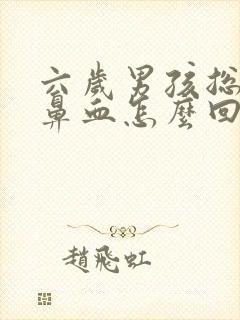 六歲男孩總
鼻血怎麼回
趙飛虹